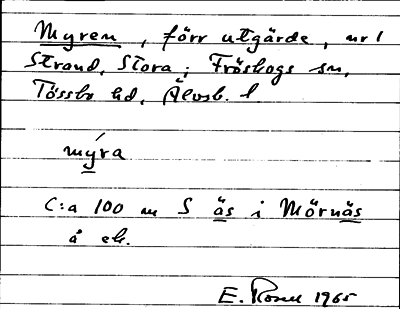 Myren, förr utgärde, nr 1
Strand, Stora; Fröskogs sn,
Tössbo hd, Älvsb. l
mýra
C:a 100 m S äs i Mörnäs
å ek.
E. Rosell 1965